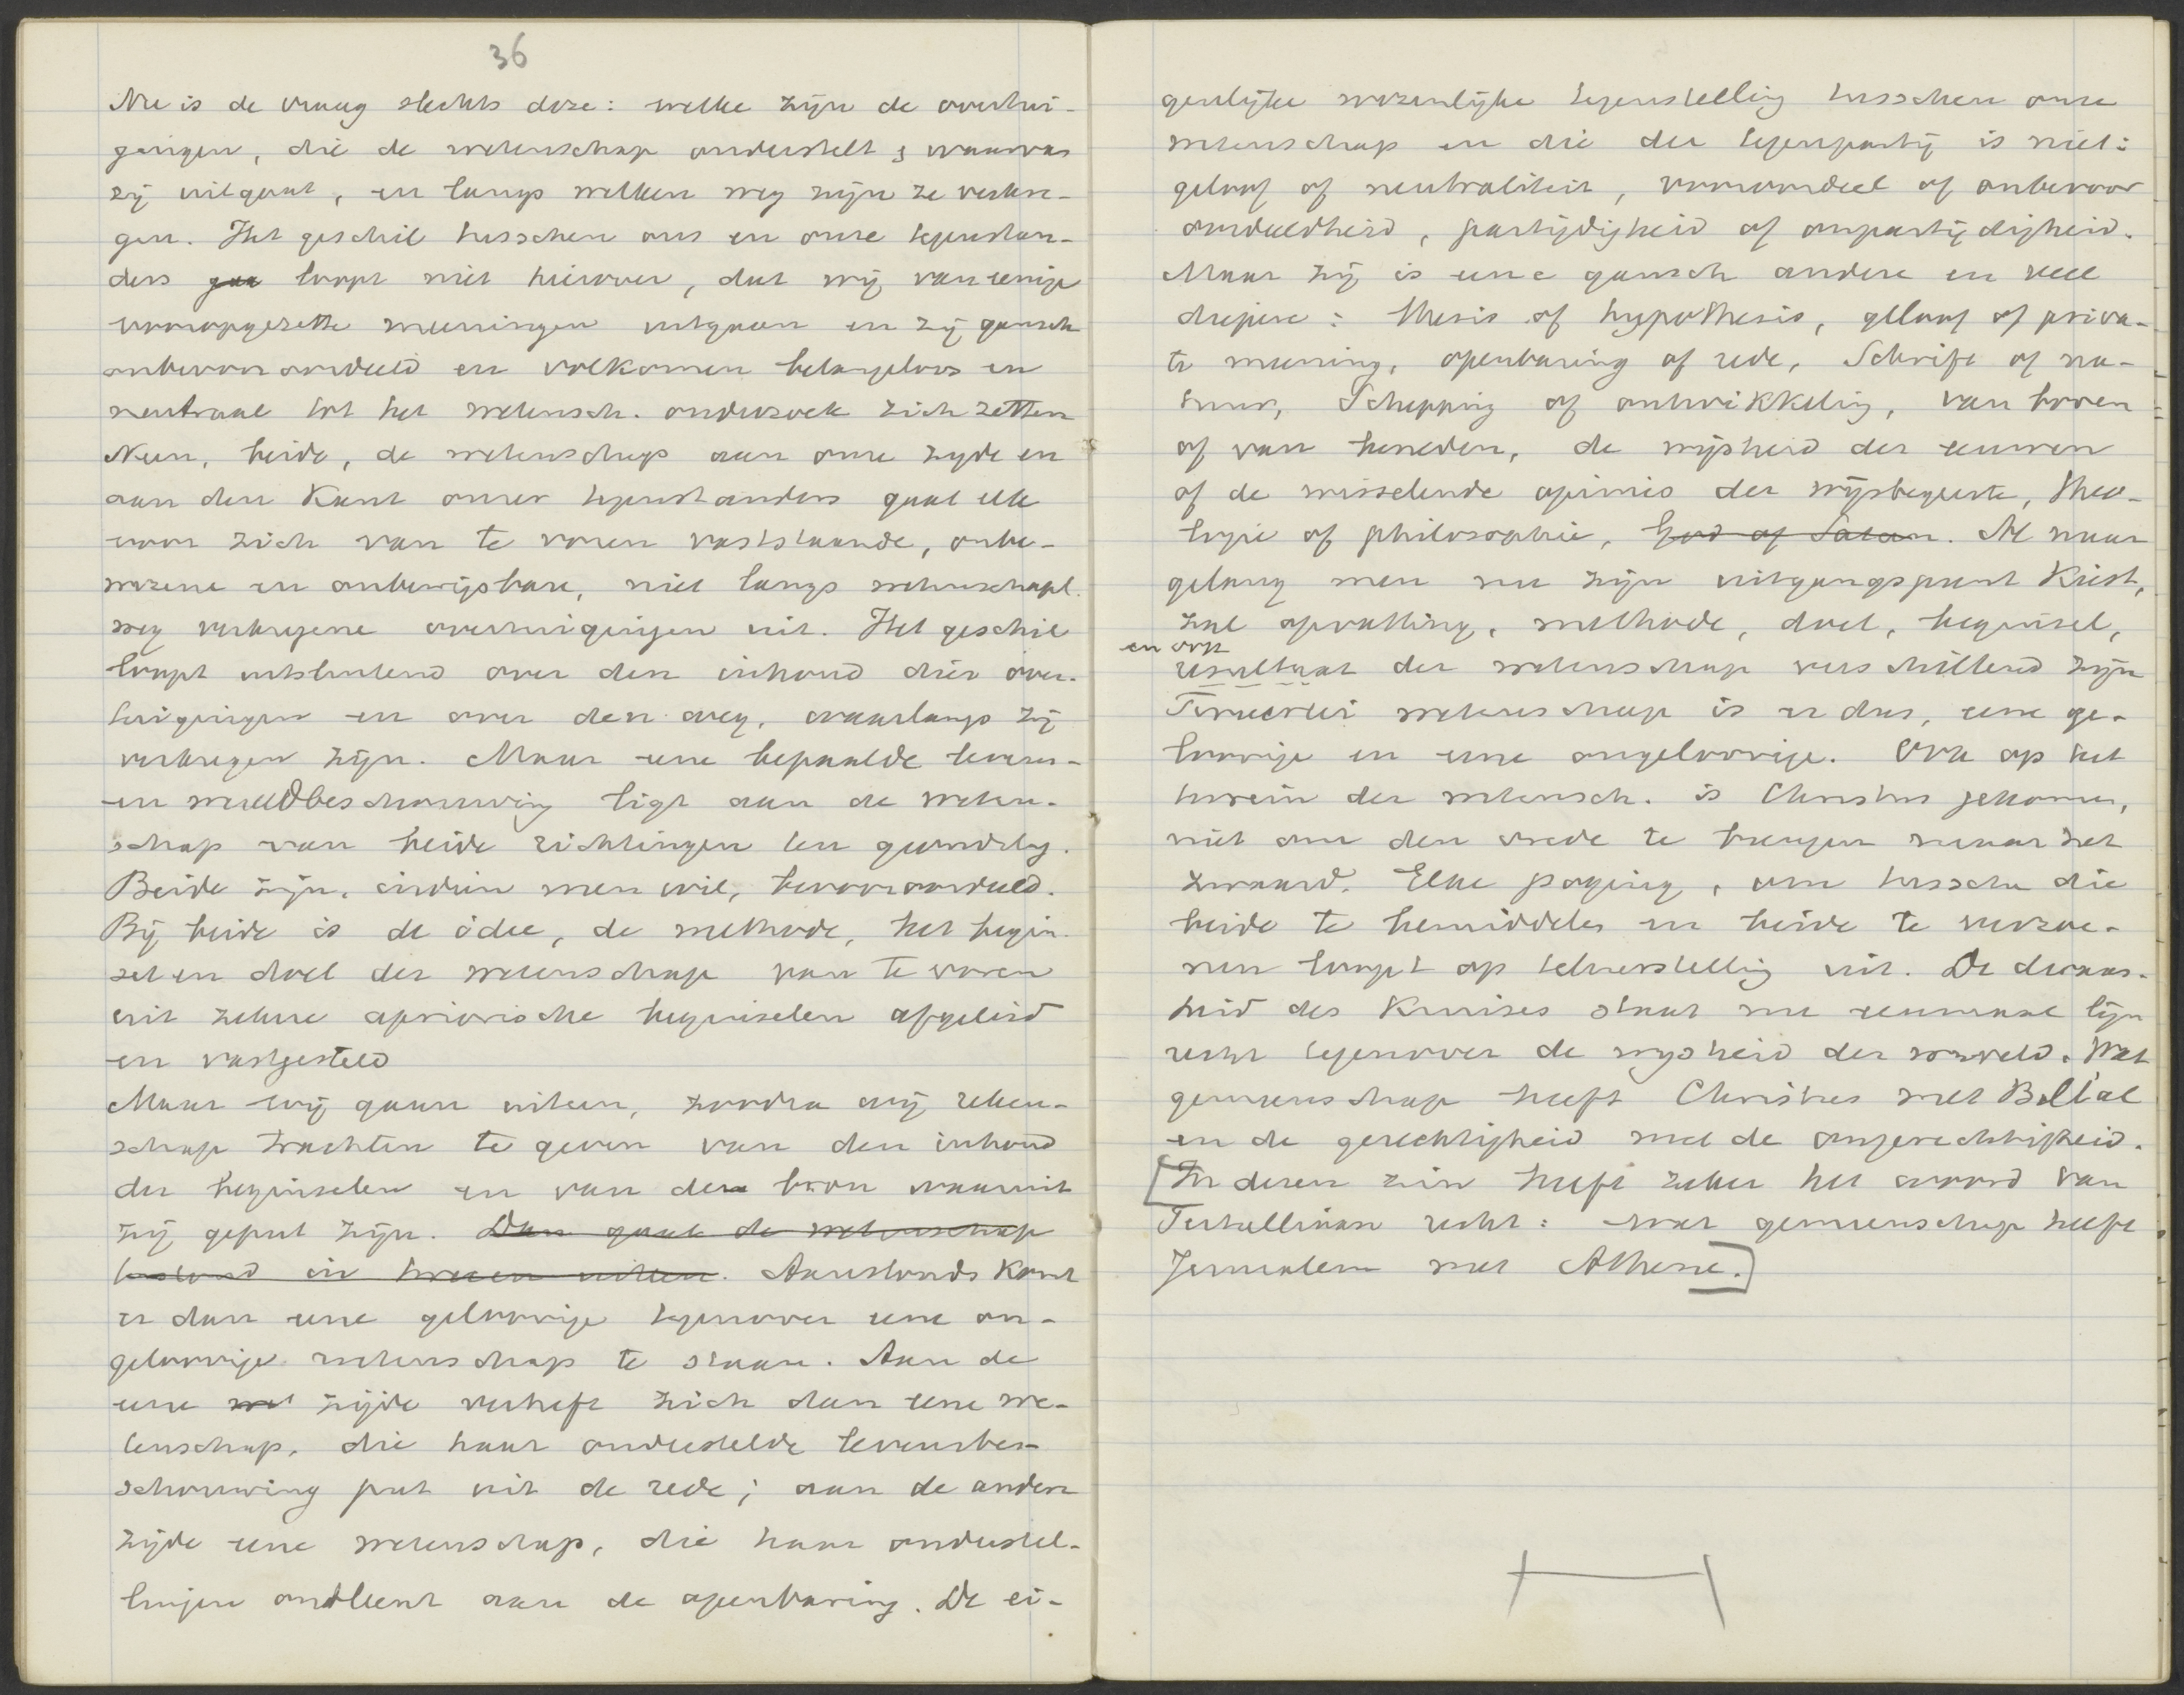 36
Nu is de vraag slechts deze: welke zijn de overtui-
gingen, die de wetenschap onderstelt & waarvan
zij uitgaat, en langs welken weg zijn ze verkre-
gen. Het geschil tusschen ons en onze tegenstan-
ders gaa loopt niet hierover, dat wij van eenige
vooropgezette meeningen uitgaan en zij gansch
onbevooroordeeld en volkomen belangeloos en
neutraal tot het wetensch. onderzoek zich zetten
Neen, beide, de wetenschap aan onze zyde en
aan den Kant onzer tegenstanders gaat elk
voor zich van te voren vaststaande, onbe-
wezene en onbewijsbare, niet langs wetenschapl.
weg verkregene overtuigingen uit. Het geschil
loopt uitsluitend over den inhoud dier over-
tuigingen en over den weg, waarlangs zij
verkregen zijn. Maar eene bepaalde levens-
en wereldbeschouwing ligt aan de weten-
schap van beide richtingen ten grondslag.
Beide zijn, indien men wil, bevooroordeeld.
Bij beide is de idee, de methode, het begin-
sel en doel der wetenschap van te voren
uit zekere apriorische beginselen afgeleid
en vastgesteld
Maar wij gaan uiteen, zoodra wij reken-
schap trachten te geven van den inhoud
der beginselen en van den bron waaruit
zij geput zijn. Dan gaat de wetenschap
in tweeen uiteen. Aanstonds komt
er dan eene geloovige tegenover eene on-
geloovige wetenschap te staan. Aan de
eene wet zijde verheft zich dan eene we-
tenschap, die haar onderstelde levensbes-
schouwing put uit de rede; aan de andere
zijde eene wetenschap, die haar onderstel-
lingen ontleent aan de openbaring. De ei-
genlijke wezenlijke tegenstelling tusschen onze
wetenschap en die der tegenpartij is niet:
geloof of neutraliteit, vooroordeel of onbevoor
oordeeldheid, partijdigheid of onpartijdigheid.
Maar zij is eene gansch andere en veel
diepere: thesis of hypothesis, geloof of priva-
te meening, openbaring of rede, Schrift of na-
tuur, Schepping of ontwikkeling, van boven
of van beneden, de wijsheid der eeuwen
of de wisselende opinio der wijsbegeerte, theo-
logie of philosophie, God of Satan. Al naar
gelang men nu zijn uitgangspunt Kiest,
zal opvatting, methode, doel, beginsel,
en ook
resultaat der wetenschap verschillend zijn
Tweeërlei wetenschap is er dus, eene ge-
loovige en eene ongeloovige. Ook op het
terrein der wetensch. is Christus gekomen,
niet om den vrede te brengen maar het
zwaard. Elke poging, om tusschen die
beide te bemiddelen en beide te verzoe-
nen loopt op teleurstelling uit. De dwaas-
heid des Kruises staat nu eenmaal lijn
recht tegenover de wysheid der wereld. Wat
gemeenschap heeft Christus met Belial
en de gerechtigheid met de ongerechtigheid.
[In dezen zin heeft zeker het woord van
Tertulliaan recht: wat gemeenschap heeft
Jerusalem met Athene.]